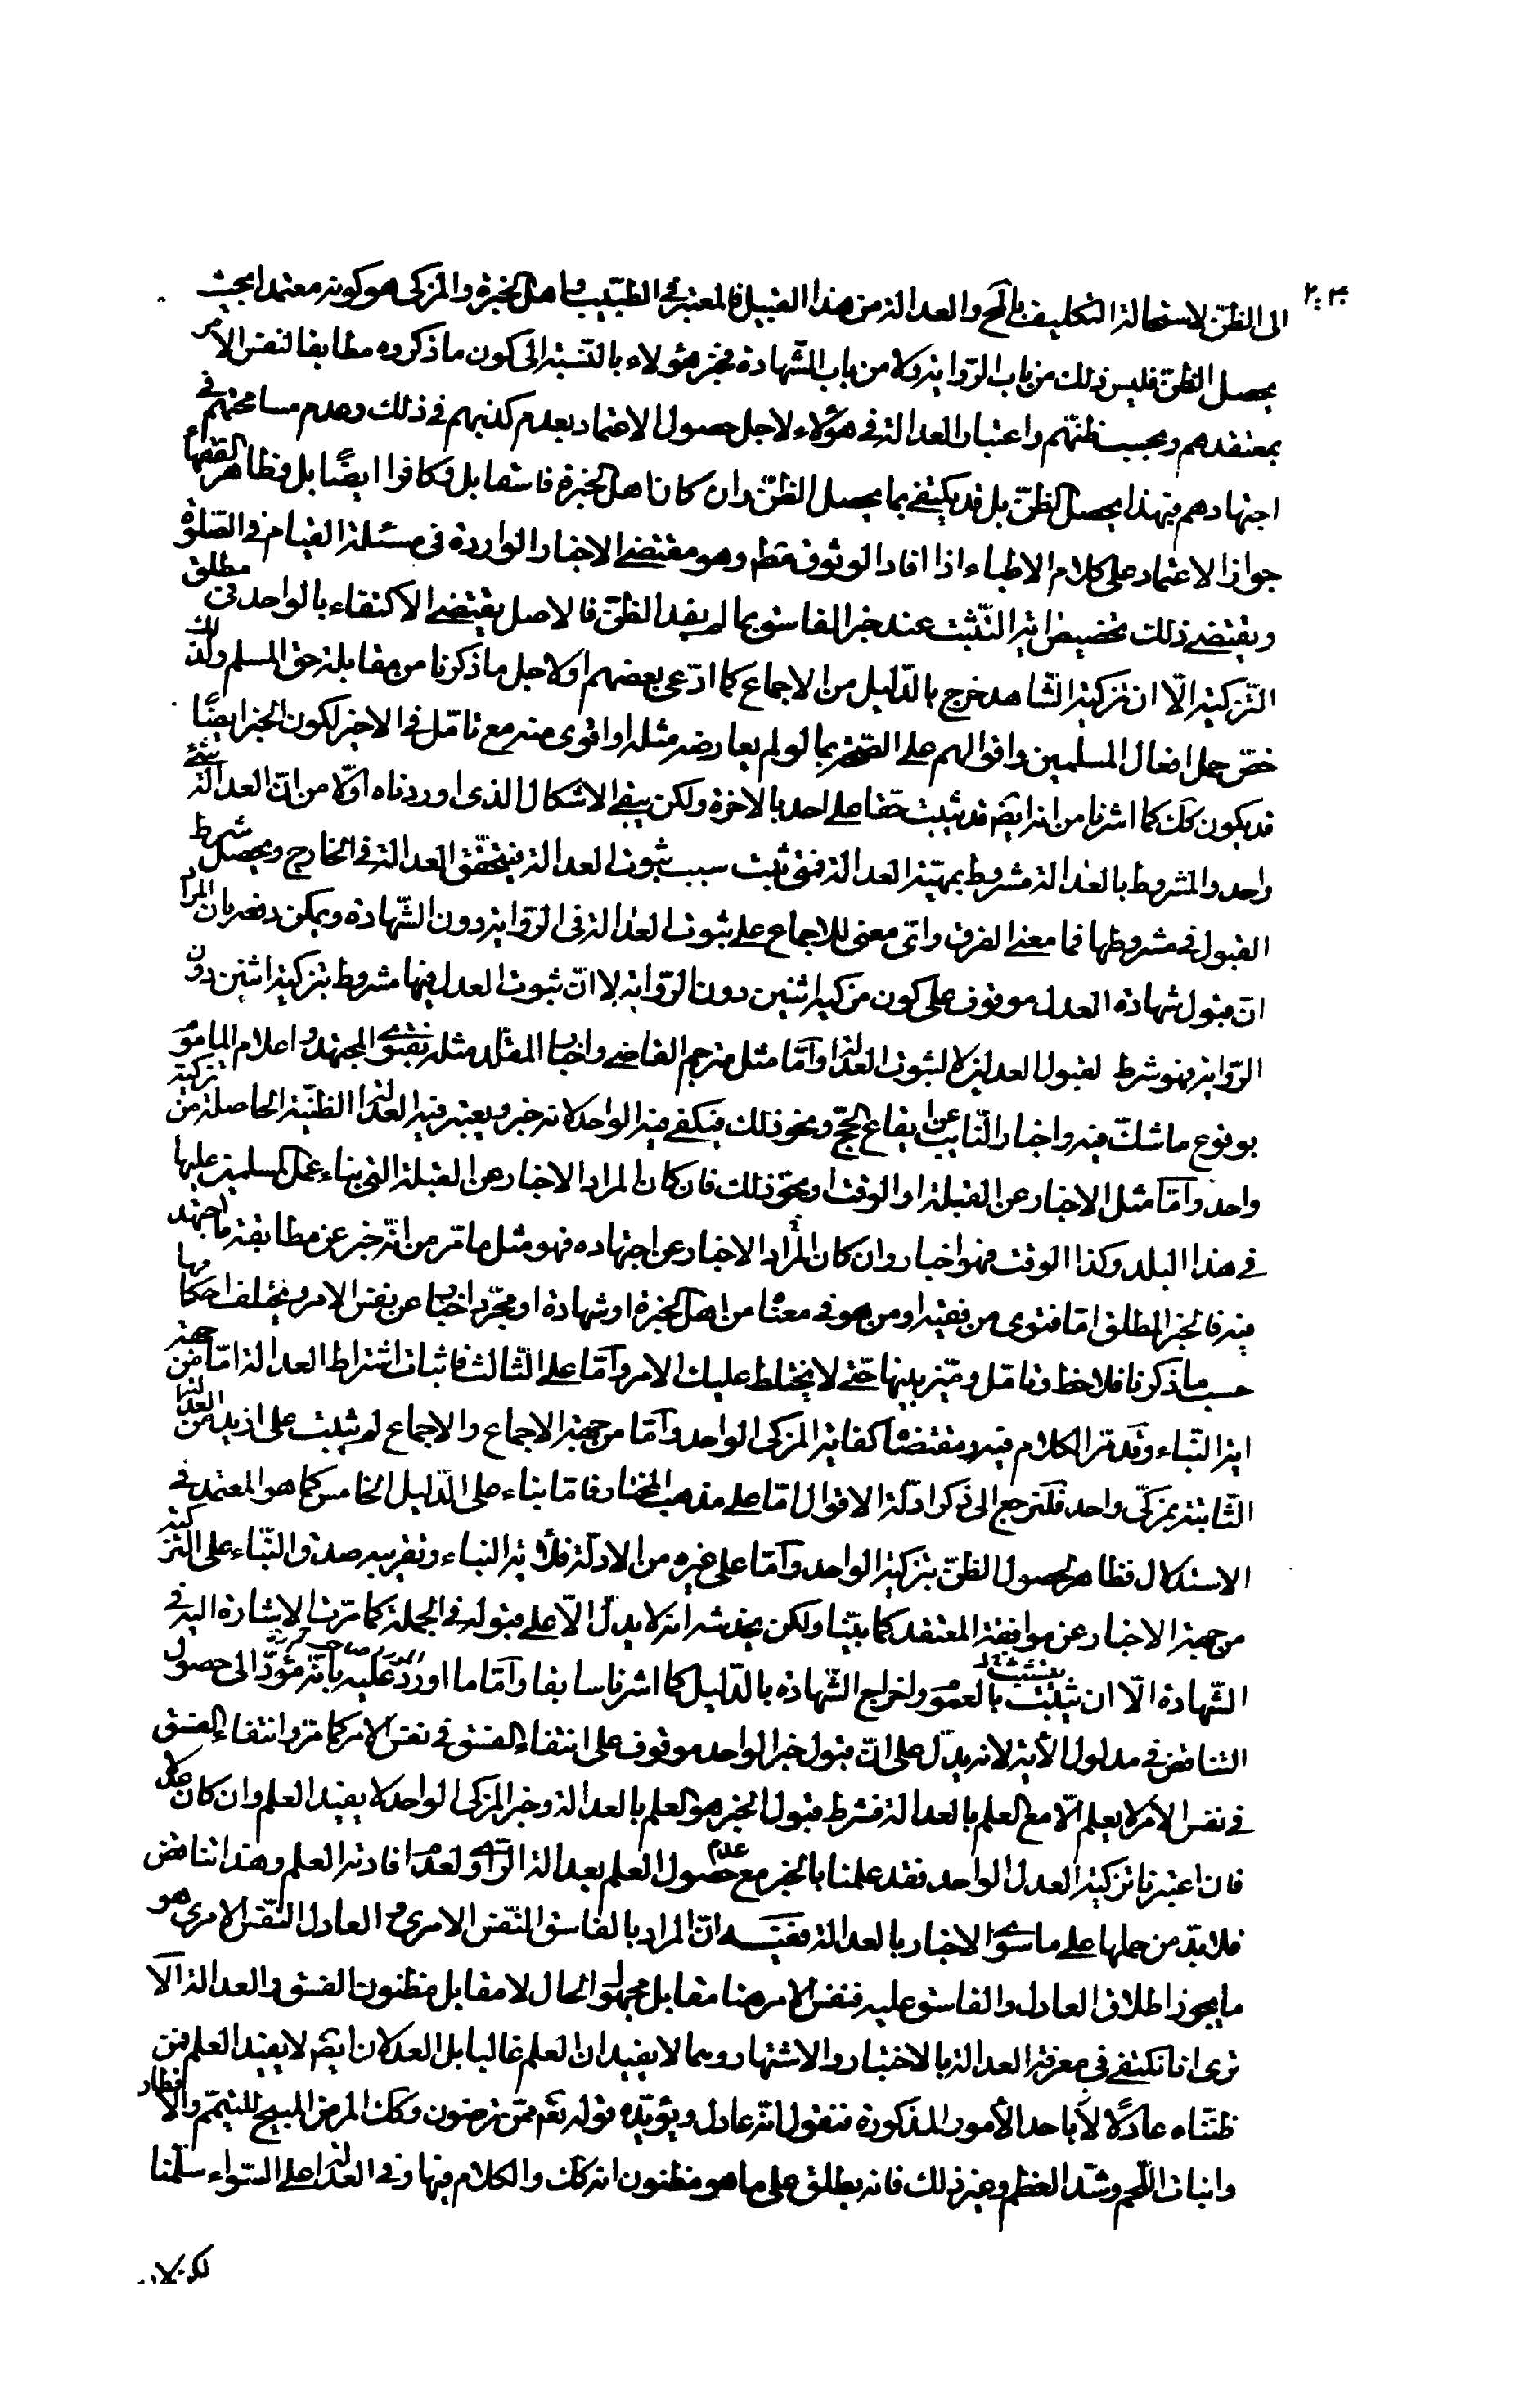 الى الظنّ لاستحالة التكليف بالمح والعدالة من هذا القبيل فالمعتبر في الطبيب واهل الخبرة والمزكى هو كونه معتمدا بحيث
يحصل الظنّ فليس ذلك من باب الرّواية ولا من باب الشّهادة فخبر هؤلاء بالنّسبة الى كون ما ذكروه مطابقا لنفس الامر
بمعتقدهم وبحسب ظنّهم واعتبار العدالة في هؤلاء لاجل حصول الاعتماد بعدم كذبهم في ذلك وعدم مسامحتهم في
اجتهادهم فبهذا يحصل الظنّ بل قد يكتفى بما يحصل الظنّ وان كان اهل الخبرة فاسقا بل وكافرا ايضًا بل وظاهر الفقهاء
جواز الاعتماد على كلام الاطباء اذا افاد الوثوق فقط وهو مقتضى الاخبار الواردة في مسئلة القيام في الصّلوة
ويقتضى ذلك تخصيص اية التّثبت عند خبر الفاسق بما لم يفد الظنّ فالاصل يقتضى الاكتفاء بالواحد في مطلق
التّزكية الّا ان تزكية الشّاهد خرج بالدّليل من الاجماع كما ادّعى بعضهم اولاجل ما ذكرنا من مقابلة حق المسلم ولذلك
خصّ حمل افعال المسلمين واقوالهم على الصّحّة بما لو لم يعارضه مثله او اقوى منه مع تامّل في الاخير لكون الخبر ايضًا
قد يكون كك كما اشرنا من انه ايضم قد يثبت حقّا على احد بالاخرة ولكن يبقى الاشكال الذى اوردناه اوّلا من انّ العدالة شئ
واحد والمشروط بالعدالة مشروط بمهيّة العدالة فمتى ثبت سبب ثبوت العدالة فيتحقّق العدالة في الخارج ويحصل شرط
القبول في مشروطها فما معنى الفرق واىّ معنى للاجماع على ثبوت العدالة في الرّواية دون الشّهادة ويمكن دفعه بان المراد
انّ قبول شهادة العدل موقوف على كون مزكيه اثنين دون الرّواية لا انّ ثبوت العدل فيها مشروط بتزكية اثنين دون
الرّواية فهو شرط لقبول العدلين لا لثبوت العدالة وامّا مثل مترجم القاضى واخبار المقلّد مثله بفتوى المجتهد واعلام المامور
بوقوع ما شكّ فيه واخبار النّائب عن ايقاع الحجّ ونحو ذلك فيكفى فيه الواحد لانه خبر ويعتبر فيه العدالة الظنّية الحاصلة من تزكية
واحد وامّا مثل الاخبار عن القبلة او الوقت ونحو ذلك فان كان المراد الاخبار عن القبلة التى بناء عمل المسلمين عليها
في هذا البلد وكذا الوقت فهو اخبار وان كان المراد الاخبار عن اجتهاده فهو مثل ما مر من انّه خبر عن مطابقة ما اجتهد
فيه فالخبر المطلق امّا فتوى من فقيه او من هو في معناه من اهل الخبرة او شهادة او مجّرد اخبار عن نفس الامر ويختلف احكامها
حسب ما ذكرنا فلاحظ وتامّل وميّز بينها حتى لا يختلط عليك الامر وامّا على الثّالث فاثبات اشتراط العدالة امّا من جهة
اية النّباء وقد مرّ الكلام فيه ومقتضاه كفاية المزكى الواحد وامّا من جهة الاجماع والاجماع لم يثبت على ازيد من العدالة
الثّابتة بمزكّى واحد فلنرجع الى ذكر ادلّة الاقوال امّا على مذهب المختار فامّا بناء على الدّليل الخامس كما هو المعتمد في
الاستدلال فظاهر لحصول الظنّ بتزكية الواحد وامّا على غيره من الادلّة فلأية النباء وتقريبه صدق النّباء على التزكية
من جهة الاخبار عن موافقة المعتقد كما بيّنا ولكن يخدشه انه لا يدلّ الّا على قبوله في الجملة كما مرّت الاشارة اليه في
الشّهادة الّا ان يثبت بالعموم واخراج الشّهادة بالدّليل كما اشرنا سابقا وامّا ما اورد عليه بانّه مؤدّ الى حصول
التناقض في مدلول الأية لانه يدلّ على انّ قبول خبر الواحد موقوف على انتفاء الفسق في نفس الامر كما مرّ وانتفاء الفسق
في نفس الامر لا يعلم الّا مع العلم بالعدالة فشرط قبول الخبر هو العلم بالعدالة وخبر المزكى الواحد لا يفيد العلم وان كان عدلا
فان اعتبرنا تزكية العدل الواحد فقد علمنا بالخبر مع عدم حصول العلم بعدالة الرّاوى لعدم افادته العلم وهذا تناقض
فلابدّ من حملها على ما سوى الاخبار بالعدالة ففيه انّ المراد بالفاسق النّفس الامرى والعادل النّفس الامرى هو
ما يجوز اطلاق العادل والفاسق عليه فنفس الامر هنا مقابل مجهول الحال لا مقابل مظنون الفسق والعدالة الا
ترى انا نكتفى في معرفة العدالة بالاختبار والاشتهار وهما لا يفيدان العلم غالبا بل العدلان ايضم لا يفيد العلم فمن
ظنّناه عادلًا لأباحد الأمور المذكورة فنقول انّه عادل ويؤيّده قوله تعم ممّن ترضون وكك المرض المبيح للتيمّم والافطار
وانبات اللّحم وشدّ العظم وغير ذلك فانه يطلق على ما هو مظنون انه كك والكلام فيها وفي العدالة على السّواء سلّمنا